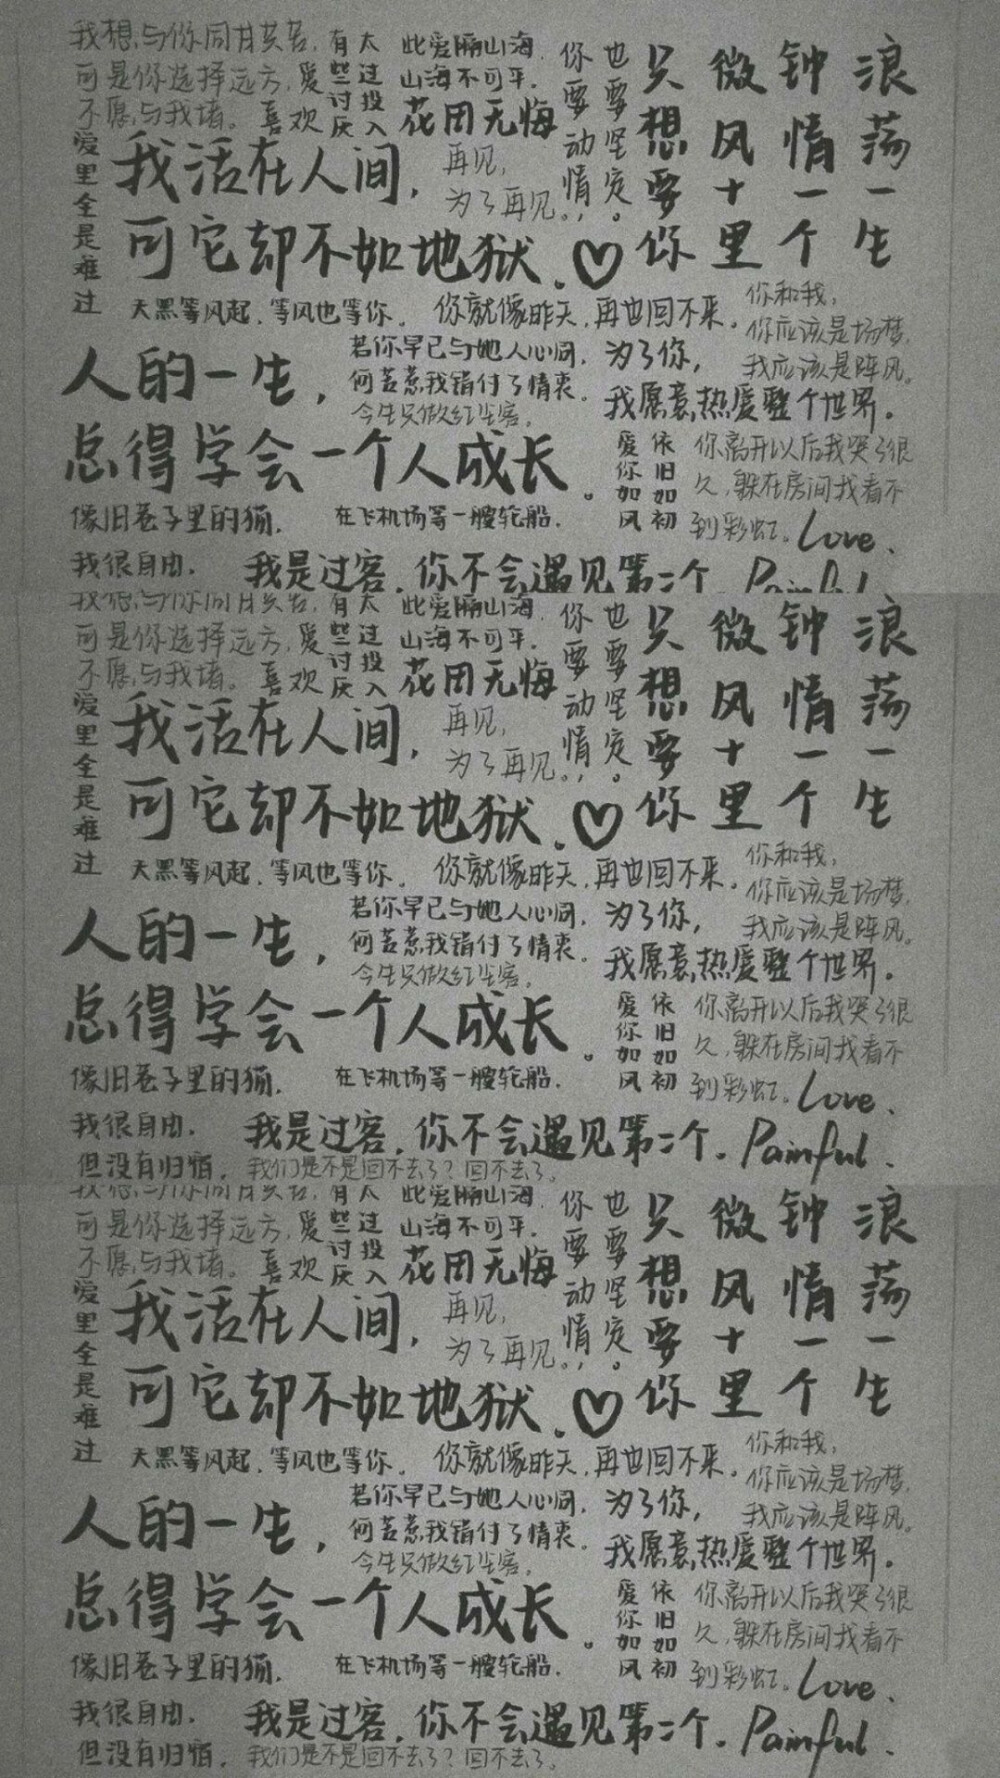 我想与你同甘共苦,
可是你选择远方,
不愿与我堵。
爱
喜欢
有些讨厌
太过投入
此爱隔山海,
山海不可平.
花田无悔
你要动情,
也要坚定。
只想要你
微风十里
钟情一个
浪荡一生
爱里全是难过
我活在人间,
可它却不如地狱.
再见,
为了再见.
天黑等风起,等风也等你。
你就像昨天,再也回不来。
你和我,
你应该是场梦,
我应该是阵风。
人的一生,
总得学会一个人成长。
若你早已与她人心同,
何苦惹我错付了情衷。
今生只做红尘客,
为了你,
我愿意热爱整个世界。
爱你如风
依旧如初
你离开以后我哭了很
久,躲在房间找看不
到彩虹。
Love.
像旧巷子里的猫,
在飞机场等一艘轮船.
我很自由,
我是过客,你不会遇见第二个.
Painful
我想与你同甘共苦,
可是你选择远方,
不愿与我堵。
爱
喜欢
有些讨厌
太过投入
此爱隔山海,
山海不可平.
花田无悔
你要动情,
也要坚定。
只想要你
微风十里
钟情一个
浪荡一生
爱里全是难过
我活在人间,
可它却不如地狱.
再见,
为了再见.
天黑等风起,等风也等你。
你就像昨天,再也回不来。
你和我,
你应该是场梦,
我应该是阵风。
人的一生,
总得学会一个人成长。
若你早已与她人心同,
何苦惹我错付了情衷。
今生只做红尘客,
为了你,
我愿意热爱整个世界。
爱你如风
依旧如初
你离开以后我哭了很
久,躲在房间找看不
到彩虹。
Love.
像旧巷子里的猫,
在飞机场等一艘轮船.
我很自由,
但没有归宿,
我是过客,你不会遇见第二个.
Painful.
我们是不是回不去了?回不去了。
我想与你同甘共苦,
可是你选择远方,
不愿与我堵。
爱
喜欢
有些讨厌
太过投入
此爱隔山海,
山海不可平.
花田无悔
你要动情,
也要坚定。
只想要你
微风十里
钟情一个
浪荡一生
爱里全是难过
我活在人间,
可它却不如地狱.
再见,
为了再见.
天黑等风起,等风也等你。
你就像昨天,再也回不来。
你和我,
你应该是场梦,
我应该是阵风。
人的一生,
总得学会一个人成长。
若你早已与她人心同,
何苦惹我错付了情衷。
今生只做红尘客,
为了你,
我愿意热爱整个世界。
爱你如风
依旧如初
你离开以后我哭了很
久,躲在房间找看不
到彩虹。
Love.
像旧巷子里的猫,
在飞机场等一艘轮船.
我很自由,
但没有归宿,
我是过客,你不会遇见第二个.
Painful.
我们是不是回不去了?回不去了。